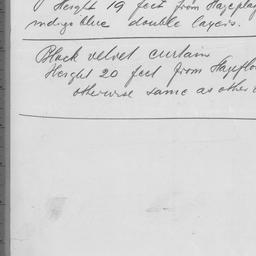 Height 19 feet from Stageplay
indigo blue double layers.
Black velvet curtain
Height 20 feet from Stageflo
otherwise same as other